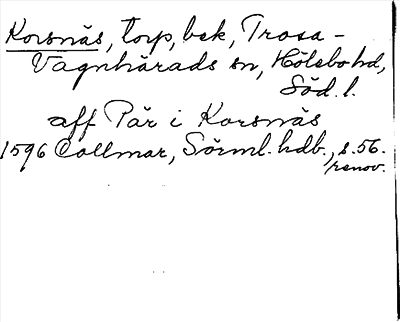 Korsnäs, torp, bek, Trosa-
Vagnhärads sn, Hölebo hd,
Söd. l.
aff Pär i Korsnäs
1596 Collmar, Sörml. hdb., s. 56.
renov.